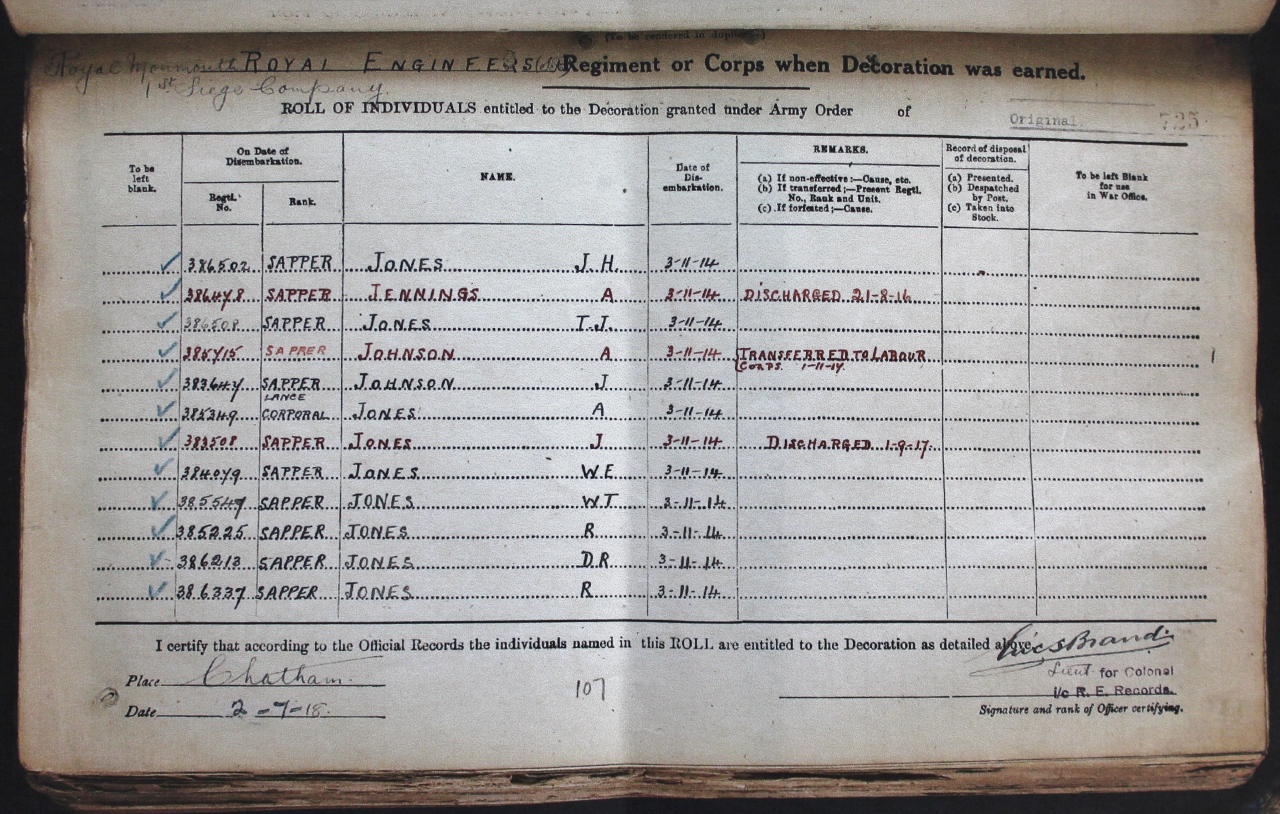 (To be rendered in duplicate)
Royal Monmouth ROYAL ENGINEERS Regiment or Corps when Decoration was earned.
1st Siege Company.
ROLL OF INDIVIDUALS entitled to the Decoration granted under Army Order of
Original. 725
To be left blank.
On Date of Disembarkation.
Regtl. No.
Rank.
NAME.
Date of Dis-embarkation.
REMARKS.
(a) If non-effective:—Cause, etc.
(b) If transferred;—Present Regtl. No., Rank and Unit.
(c) If forfeited;—Cause.
Record of disposal of decoration.
(a) Presented.
(b) Despatched by Post.
(c) Taken into Stock.
To be left Blank for use in War Office.
386502 SAPPER JONES J.H. 3-11-14
386478 SAPPER JENNINGS A 3-11-14 DISCHARGED 21-8-16
386508 SAPPER JONES T.J. 3-11-14
385715 SAPPER JOHNSON A 3-11-14 TRANSFERRED TO LABOUR
CORPS. 1-11-17.
383647 SAPPER JOHNSON J 3-11-14
385349 LANCE CORPORAL JONES A 3-11-14
383508 SAPPER JONES J 3-11-14 DISCHARGED 1-9-17.
384079 SAPPER JONES W.E 3-11-14
385547 SAPPER JONES W.T 3-11-14
385225 SAPPER JONES R 3-11-14
386213 SAPPER JONES D.R 3-11-14
386337 SAPPER JONES R 3-11-14
I certify that according to the Official Records the individuals named in this ROLL are entitled to the Decoration as detailed above.
Place Chatham.
Date 2-7-18.
107
Brand
Lieut for Colonel
i/c R. E. Records.
Signature and rank of Officer certifying.